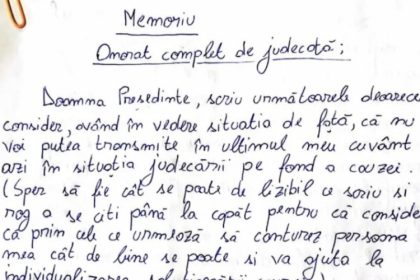 Memoriu
Onorat complet de judecată;
Doamna Președinte, scriu următoarele deoarece
consider, având în vedere situația de față, că nu
voi putea transmite în ultimul meu cuvânt
azi în situația judecării pe fond a cauzei.
(Sper să fie cât se poate de lizibil ce scriu și
rog a se citi până la capăt pentru că conside
că prin cele ce urmează să conturez persoana
mea cât de bine se poate și va ajuta la
individualizarea